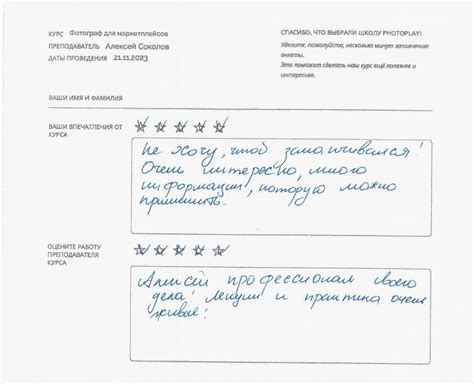 КУРС Фотограф для маркетплейсов
ПРЕПОДАВАТЕЛЬ Алексей Соколов
ДАТЫ ПРОВЕДЕНИЯ 21.11.2023
СПАСИБО, ЧТО ВЫБРАЛИ ШКОЛУ PHOTOPLAY!
Уделите, пожалуйста, несколько минут заполнению
анкеты.
Это поможет сделать наш курс ещё полезнее и
интереснее.
ВАШИ ИМЯ И ФАМИЛИЯ
ВАШИ ВПЕЧАТЛЕНИЯ ОТ
КУРСА
Не хочу, чтоб заканчивался!
Очень интересно, много
информации, которую можно
применить.
ОЦЕНИТЕ РАБОТУ
ПРЕПОДАВАТЕЛЯ
КУРСА
Алексей профессионал своего
дела! Лекции и практика очень
живые!